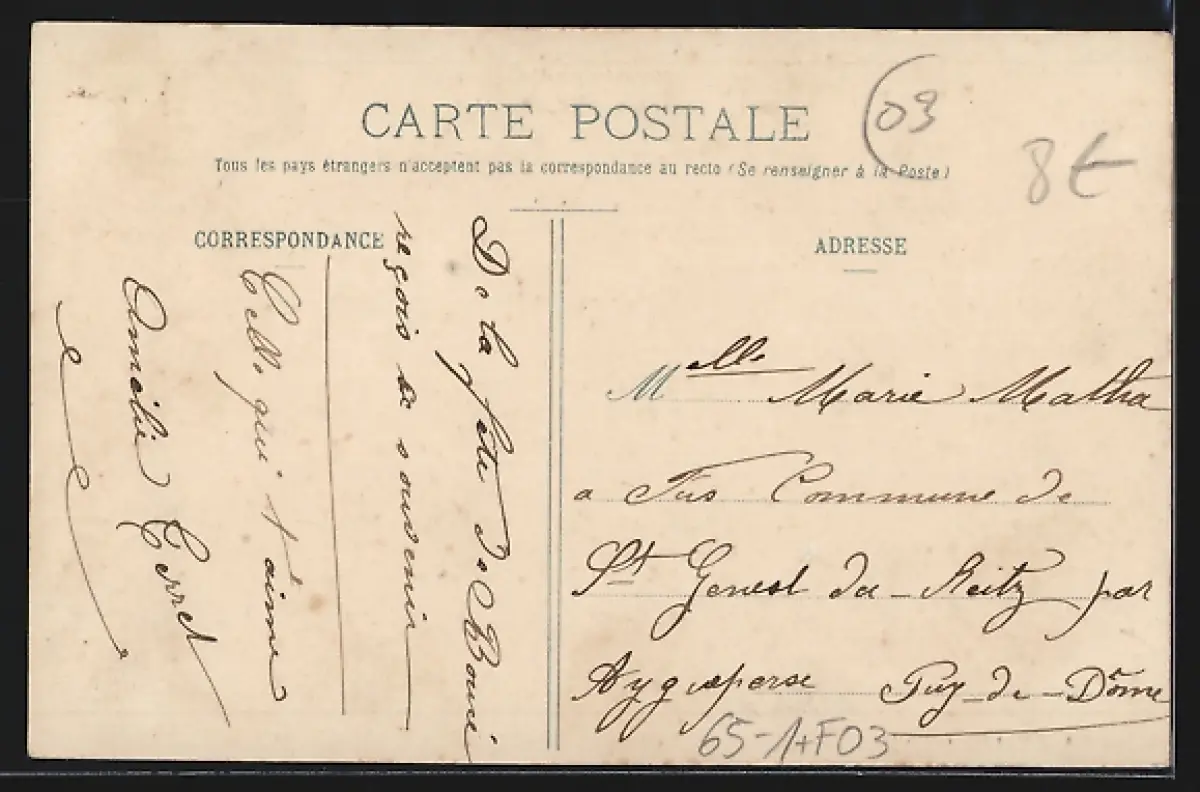 CARTE POSTALE
03
8€
Tous les pays étrangers n'acceptent pas la correspondance au recto (Se renseigner à la Poste)
CORRESPONDANCE
De la fête de
reçois ce souvenir
Celle qui t'aime
Amélie
ADRESSE
Melle Marie Matha
a Jus Commune de
St Genest du-Retz par
Aygueperse Puy-de-Dôme
65-1+F03